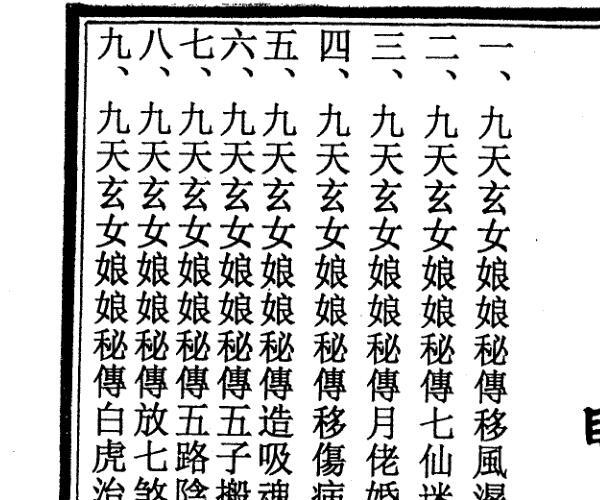 一、九天玄女娘娘秘傳移風濕
二、九天玄女娘娘秘傳七仙迷
三、九天玄女娘娘秘傳月佬婚
四、九天玄女娘娘秘傳移傷病
五、九天玄女娘娘秘傳造吸魂
六、九天玄女娘娘秘傳五子搬
七、九天玄女娘娘秘傳五路陰
八、九天玄女娘娘秘傳放七煞
九、九天玄女娘娘秘傳白虎治